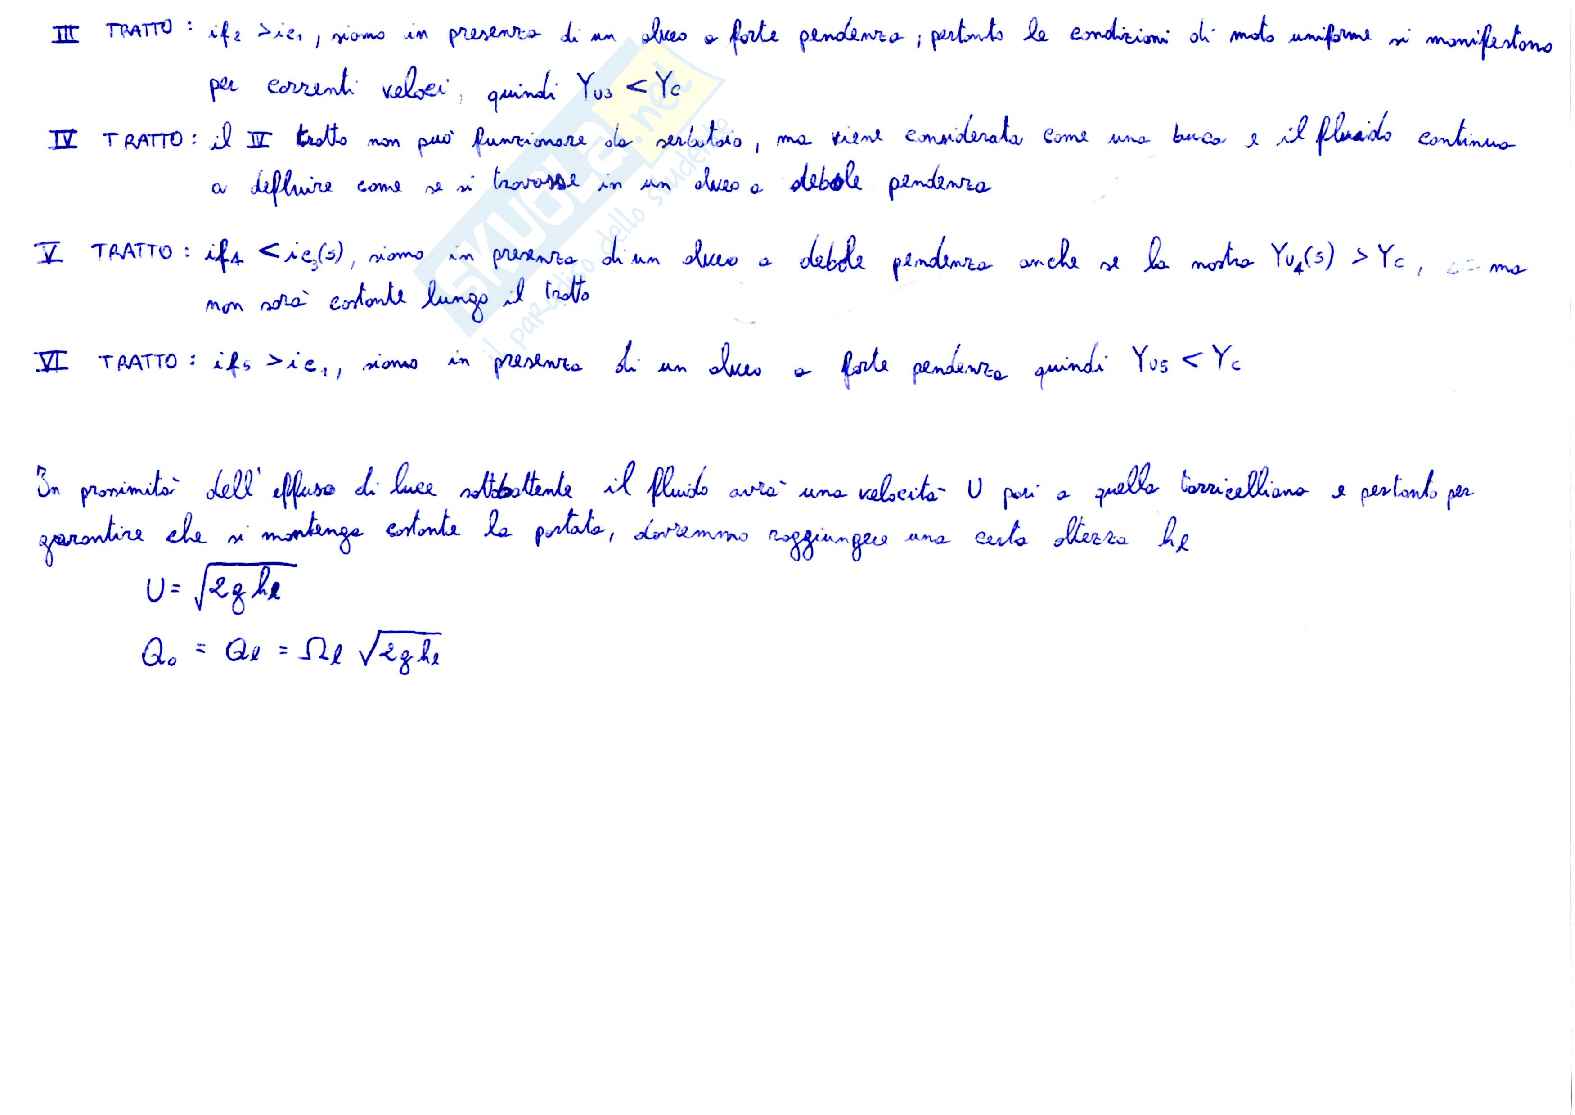 III TRATTO: if₂ > ic₁, siamo in presenza di un alveo a forte pendenza; pertanto le condizioni di moto uniforme si manifestano
per correnti veloci, quindi Yu₃ < Yc
IV TRATTO: il IV tratto non può funzionare da serbatoio, ma viene considerata come una buca e il fluido continua
a defluire come se si trovasse in un alveo a debole pendenza
V TRATTO: if₄ < ic₃(s), siamo in presenza di un alveo a debole pendenza anche se la nostra Yu₄(s) > Yc, ma
non sarà costante lungo il tratto
VI TRATTO: if₅ > ic₁, siamo in presenza di un alveo a forte pendenza quindi Yu₅ < Yc
In prossimità dell'efflusso di luce sottobattente il fluido avrà una velocità U pari a quella torricelliana e pertanto per
garantire che si mantenga costante la portata, dovremmo raggiungere una certa altezza hl
U = √2g hl
Q₀ = Ql = Ωl √2g hl
SKUOLA.net
il paradiso dello studente